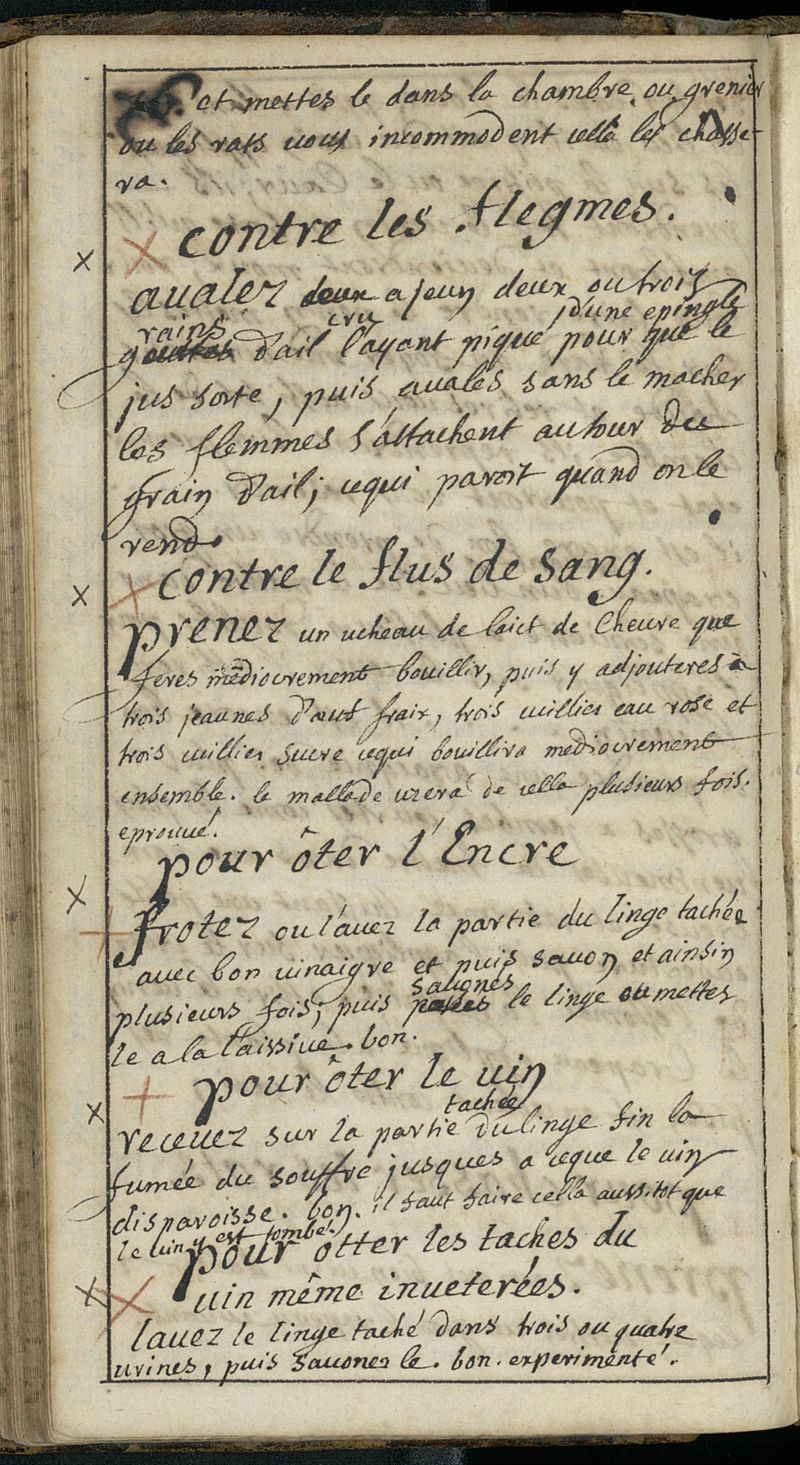 76. et mettes le dans la chambre ou grenier
ou les rats vous incommodent cella les chasse-
ra.
contre les flegmes.
aualez deux a jeun deux ou trois
rains cru d'une epingle
gouttes d'ail l'ayant piqué pour que le
jus sorte, puis auales sans le macher
les flemmes s'attachent autour du
grain d'ail; cequi paroit quand on le
rend.
contre le flus de sang.
prenez un ucheau de laict de cheure que
feres médiocrement bouillir, puis y adjouteres
trois jeaunes d'œuf frair, trois cuillier eau rose et
trois cuillier sucre cequi bouillira mediocrement
ensemble. le mallade uzera de cella plusieurs fois.
eprouué.
pour ôter l'Encre
frotez ou l'auez la partie du linge tachée
avec bon uinaigre et puis sauon et ainsin
sauonés
plusieurs fois, puis passes le linge ou mettes
le a la laissiue. bon.
pour ôter le uin
tachée
receuez sur la partie du linge fin la
fumée du souffre jusques a ceque le uin
disparoisse. bon. il faut faire cella aussitot que
le uin y est tombé.
pour otter les taches du
uin même inueterées.
lauez le linge taché dans trois ou quatre
urines, puis sauonez le. bon. experimenté.